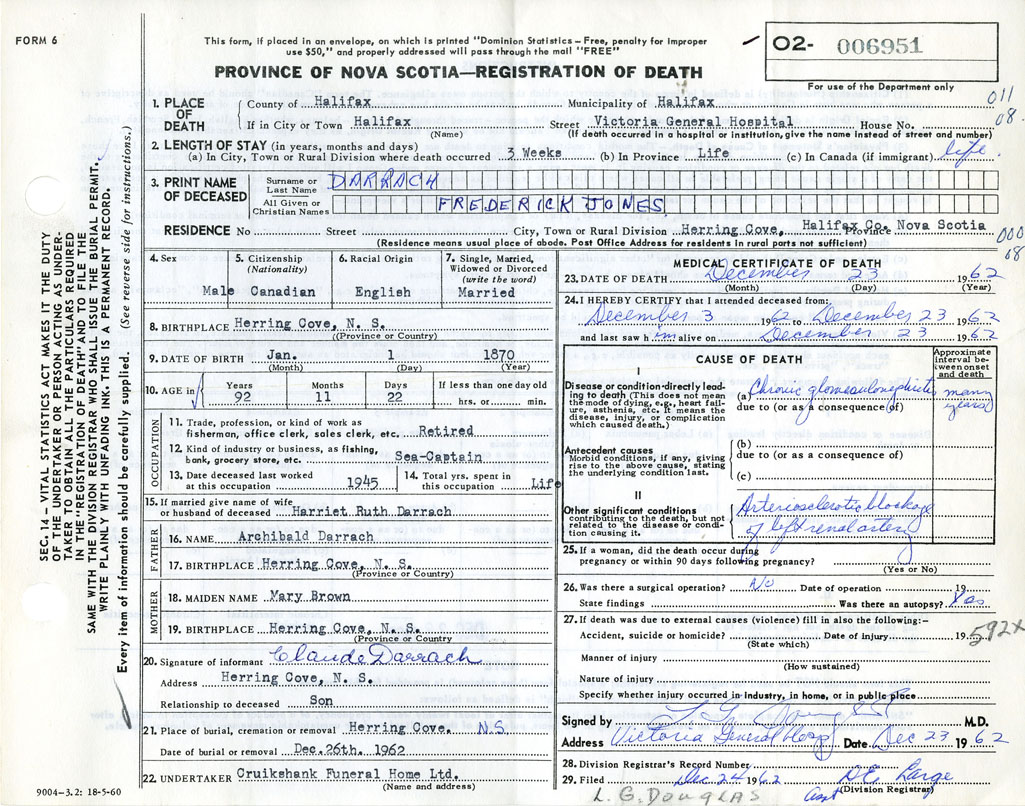 FORM 6
This form, if placed in an envelope, on which is printed "Dominion Statistics – Free, penalty for improper
use $50," and properly addressed will pass through the mail "FREE"
PROVINCE OF NOVA SCOTIA—REGISTRATION OF DEATH
02- 006951
For use of the Department only
011
08.
1. PLACE OF DEATH
County of Halifax Municipality of Halifax
If in City or Town Halifax (Name) Street Victoria General Hospital House No.
(If death occurred in a hospital or institution, give the name instead of street and number)
2. LENGTH OF STAY (in years, months and days)
(a) In City, Town or Rural Division where death occurred 3 Weeks (b) In Province Life (c) In Canada (if immigrant) life
3. PRINT NAME OF DECEASED
Surname or Last Name DARRACH
All Given or Christian Names FREDERICK JONES
RESIDENCE No Street City, Town or Rural Division Herring Cove, Halifax Co. Province Nova Scotia
(Residence means usual place of abode. Post Office Address for residents in rural parts not sufficient)
000
08
4. Sex Male
5. Citizenship (Nationality) Canadian
6. Racial Origin English
7. Single, Married, Widowed or Divorced (write the word) Married
8. BIRTHPLACE Herring Cove, N. S.
(Province or Country)
9. DATE OF BIRTH Jan. 1 1870
(Month) (Day) (Year)
10. AGE in Years 92 Months 11 Days 22 If less than one day old hrs. or min.
OCCUPATION
11. Trade, profession, or kind of work as
fisherman, office clerk, sales clerk, etc. Retired
12. Kind of industry or business, as fishing,
bank, grocery store, etc. Sea-Captain
13. Date deceased last worked at this occupation 1945
14. Total yrs. spent in this occupation Life
15. If married give name of wife
or husband of deceased Harriet Ruth Darrach
FATHER
16. NAME Archibald Darrach
17. BIRTHPLACE Herring Cove, N. S.
(Province or Country)
MOTHER
18. MAIDEN NAME Mary Brown
19. BIRTHPLACE Herring Cove, N. S.
(Province or Country)
20. Signature of informant Claude Darrach
Address Herring Cove, N. S.
Relationship to deceased Son
21. Place of burial, cremation or removal Herring Cove. N.S.
Date of burial or removal Dec. 26th. 1962
22. UNDERTAKER Cruikshank Funeral Home Ltd.
(Name and address)
9004-3.2: 18-5-60
MEDICAL CERTIFICATE OF DEATH
23. DATE OF DEATH December 23 1962
(Month) (Day) (Year)
24. I HEREBY CERTIFY that I attended deceased from:
December 3 1962 to December 23 1962
and last saw h im alive on December 23 1962
CAUSE OF DEATH
Approximate interval between onset and death
I
Disease or condition directly leading to death (This does not mean the mode of dying, e.g., heart failure, asthenia, etc. It means the disease, injury, or complication which caused death.)
(a) Chronic glomerulonephritis many years
due to (or as a consequence of)
Antecedent causes
Morbid conditions, if any, giving rise to the above cause, stating the underlying condition last.
(b)
due to (or as a consequence of)
(c)
II
Other significant conditions
contributing to the death, but not related to the disease or condition causing it.
Arteriosclerotic blockage
of left renal artery
25. If a woman, did the death occur during
pregnancy or within 90 days following pregnancy?
(Yes or No)
26. Was there a surgical operation? No Date of operation 19
State findings Was there an autopsy? Yes
27. If death was due to external causes (violence) fill in also the following:—
Accident, suicide or homicide? Date of injury 19
(State which)
592x
Manner of injury
(How sustained)
Nature of injury
Specify whether injury occurred in industry, in home, or in public place
Signed by M.D.
Address Victoria General Hosp Date Dec 23 1962
28. Division Registrar's Record Number
29. Filed Dec 24 1962 D.E. Large
Asst (Division Registrar)
L. G. DOUGLAS
SEC. 14 – VITAL STATISTICS ACT MAKES IT THE DUTY
OF THE UNDERTAKER OR PERSON ACTING AS UNDER-
TAKER TO OBTAIN ALL THE PARTICULARS REQUIRED
IN THE "REGISTRATION OF DEATH" AND TO FILE THE
SAME WITH THE DIVISION REGISTRAR WHO SHALL ISSUE THE BURIAL PERMIT.
WRITE PLAINLY WITH UNFADING INK. THIS IS A PERMANENT RECORD.
Every item of information should be carefully supplied. (See reverse side for instructions.)